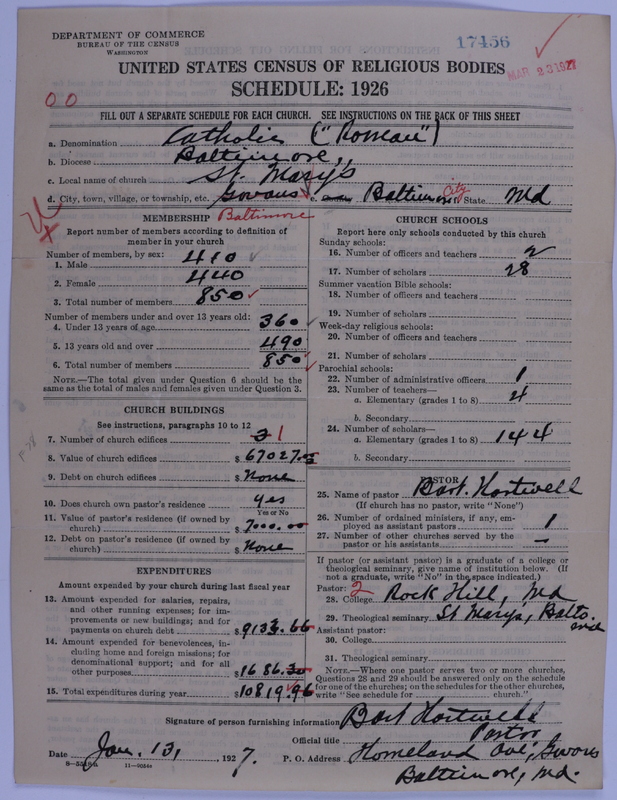 DEPARTMENT OF COMMERCE
BUREAU OF THE CENSUS
WASHINGTON
17456
MAR 23 1927
UNITED STATES CENSUS OF RELIGIOUS BODIES
SCHEDULE: 1926
00
FILL OUT A SEPARATE SCHEDULE FOR EACH CHURCH. SEE INSTRUCTIONS ON THE BACK OF THIS SHEET
a. Denomination Catholic ("Roman")
b. Diocese Baltimore,
c. Local name of church St. Mary's
d. City, town, village, or township, etc. Govans e. Baltimore City State Md
MEMBERSHIP Baltimore
Report number of members according to definition of
member in your church
Number of members, by sex:
1. Male 410
2. Female 440
3. Total number of members 850
Number of members under and over 13 years old:
4. Under 13 years of age 360
5. 13 years old and over 490
6. Total number of members 850
NOTE.—The total given under Question 6 should be the
same as the total of males and females given under Question 3.
CHURCH BUILDINGS
See instructions, paragraphs 10 to 12
7. Number of church edifices 3 1
8. Value of church edifices $ 67027.
9. Debt on church edifices $ None
10. Does church own pastor's residence Yes
Yes or No
11. Value of pastor's residence (if owned by
church) $ 7000.00
12. Debt on pastor's residence (if owned by
church) $ None
EXPENDITURES
Amount expended by your church during last fiscal year
13. Amount expended for salaries, repairs,
and other running expenses; for im-
provements or new buildings; and for
payments on church debt $ 9133.66
14. Amount expended for benevolences, in-
cluding home and foreign missions; for
denominational support; and for all
other purposes $ 1686.30
15. Total expenditures during year $ 10819.96
CHURCH SCHOOLS
Report here only schools conducted by this church
Sunday schools:
16. Number of officers and teachers 2
17. Number of scholars 28
Summer vacation Bible schools:
18. Number of officers and teachers
19. Number of scholars
Week-day religious schools:
20. Number of officers and teachers
21. Number of scholars
Parochial schools:
22. Number of administrative officers 1
23. Number of teachers—
a. Elementary (grades 1 to 8) 4
b. Secondary
24. Number of scholars—
a. Elementary (grades 1 to 8) 144
b. Secondary
PASTOR
25. Name of pastor Bart. Hartwell
(If church has no pastor, write "None")
26. Number of ordained ministers, if any, em-
ployed as assistant pastors 1
27. Number of other churches served by the
pastor or his assistants —
If pastor (or assistant pastor) is a graduate of a college or
theological seminary, give name of institution below. (If
not a graduate, write "No" in the space indicated.)
Pastor: 2
28. College Rock Hill, Md
29. Theological seminary St Marys, Balto
Assistant pastor:
30. College
31. Theological seminary
NOTE.—Where one pastor serves two or more churches,
Questions 28 and 29 should be answered only on the schedule
for one of the churches; on the schedules for the other churches,
write "See schedule for church."
Signature of person furnishing information Bart Hartwell
Official title Pastor
Date Jan. 13, 1927. P. O. Address Homeland Ave, Govans
Baltimore, Md.
11—9034